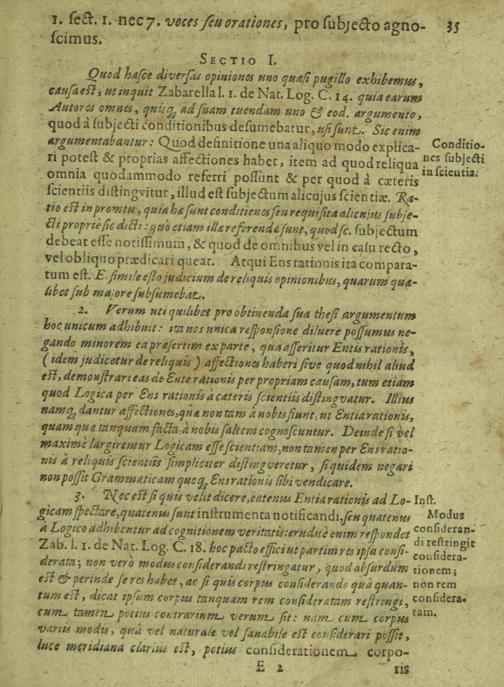 1. sect. 1. nec 7. voces seu orationes, pro subjecto agno- 35
scimus.
SECTIO I.
Quod hasce diversas opiniones uno quasi pugillo exhibemus,
causa est, ut inquit Zabarella l. 1. de Nat. Log. C. 14. quia earum
Autores omnes, quisq; ad suam tuendam uno & eod. argumento,
quod à subjecti conditionibus desumebatur, usi sunt. Sic enim
argumentabantur: Quod definitione una aliquo modo explica-
ri potest & proprias affectiones habet, item ad quod reliqua
omnia quodammodo referri possunt & per quod à cæteris
scientiis distingvitur, illud est subjectum alicujus scientiæ. Ra-
tio est in promtu, quia hæ sunt conditiones seu requisita alicujus subje-
cti propriè sic dicti: quò etiam illæ referendæ sunt, quod sc. subjectum
debeat esse notissimum, & quod de omnibus vel in casu recto,
vel obliquo prædicari queat. Atqui Ens rationis ita compara-
tum est. E. simile esto judicium de reliquis opinionibus, quarum quæ-
libet sub majore subsumebat.
Conditio-
nes subjecti
in scientia.
2. Verum uti quilibet pro obtinenda sua thesi argumentum
hoc unicum adhibuit: ita nos unica responsione diluere possumus ne-
gando minorem ea præsertim ex parte, qua asseritur Entis rationis,
(idem judicetur de reliquis) affectiones haberi sive quod nihil aliud
est, demonstrari eas de Ente rationis per propriam causam, tum etiam
quod Logica per Ens rationis à cæteris scientiis distingvatur. Illius
namq; dantur affectiones, quæ non tam à nobis fiunt, ut Entia rationis,
quam quæ tanquam facta à nobis saltem cognoscuntur. Deinde si vel
maximè largiremur Logicam esse scientiam, non tamen per Ens ratio-
nis à reliquis scientiis simpliciter distingveretur, siquidem negari
non possit Grammaticam quoq; Ens rationis sibi vendicare.
3. Nec est si quis velit dicere, eatenus Entia rationis ad Lo-
gicam spectare, quatenus sunt instrumenta notificandi, seu quatenus
à Logico adhibentur ad cognitionem veritatis: eruditè enim respondet
Zab. l. 1. de Nat. Log. C. 18. hoc pacto effici ut partim res ipsa consi-
derata; non verò modus considerandi restringatur, quod absurdum
est & perinde se res habet, ac si quis corpus considerando quà quan-
tum est, dicat ipsum corpus tanquam rem consideratam restringi,
cum tamen potius contrarium verum sit: nam cum corpus
variis modis, quà vel naturale vel sanabile est considerari possit,
luce meridiana clarius est, potius considerationem corpo-
Inst.
Modus
consideran-
di restringit
considera-
tionem;
non rem
considera-
tam.
E 2 ris